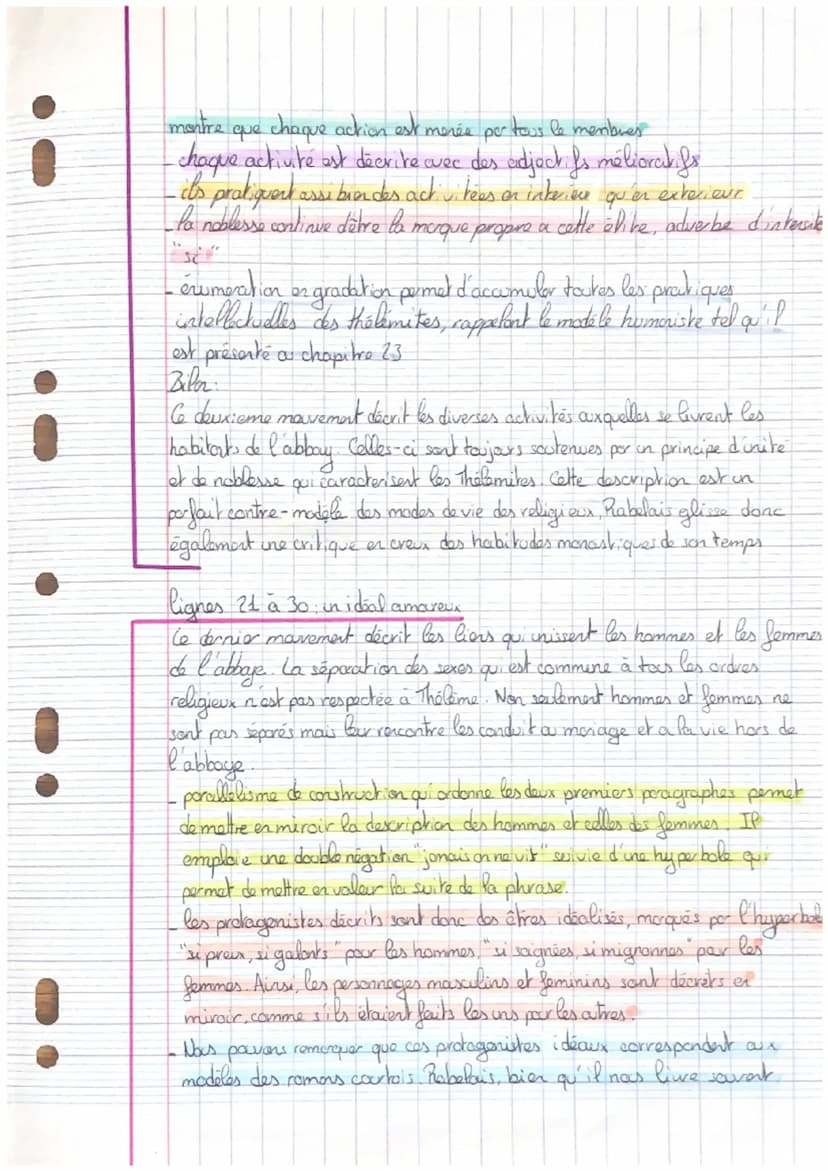 montre que chaque action est menée par tous le membres
- chaque activité est décrite avec des adjectifs mélioratifs
- ils pratiquent assi bien des activitées en interieu qu'en exterieur
- la noblesse continue d'être la marque propre a cette élite, adverbe d'intensité
"si"
- énumeration en gradation permet d'accumuler toutes les pratiques
intellectuelles des thélémites, rappelant le modèle humaniste tel qu'il
est présenté au chapitre 23
Bilan:
Ce deuxieme mouvement décrit les diverses activités auxquelles se livrent les
habitants de l'abbay. Celles-ci sont toujours soutenues par un principe d'unité
et de noblesse qui caracterisent les Thélémites. Cette description est un
parfait contre-modèle des modes de vie des religieux, Rabelais glisse donc
également une critique en creux des habitudes monastiques de son temps

lignes 21 à 30: un idéal amoureux
Ce dernier mouvement décrit les liens qui unissent les hommes et les femmes
de l'abbaye. La séparation des sexes qui est commune à tous les ordres
religieux n'est pas respectée à Thélème. Non seulement hommes et femmes ne
sont pas séparés mais leur rencontre les conduit au mariage et a la vie hors de
l'abbaye.
- parallélisme de construction qui ordonne les deux premiers paragraphes permet
de mettre en miroir la description des hommes et celles des femmes. Il
emploie une double négation "jamais on ne vit" suivie d'une hyperbole qui
permet de mettre en valeur la suite de la phrase.
- les protagonistes décrits sont donc des êtres idéalisés, marqués par l'hyperbole
"si preux, si galants" pour les hommes, "si soignées, si mignonnes" par les
femmes. Ainsi, les personnages masculins et feminins sont décrits en
miroir, comme s'ils étaient faits les uns pour les autres.
- Nous pouvons remarquer que ces protagonistes idéaux correspondent aux
modèles des romans courtois. Rabelais, bien qu'il nous livre souvent